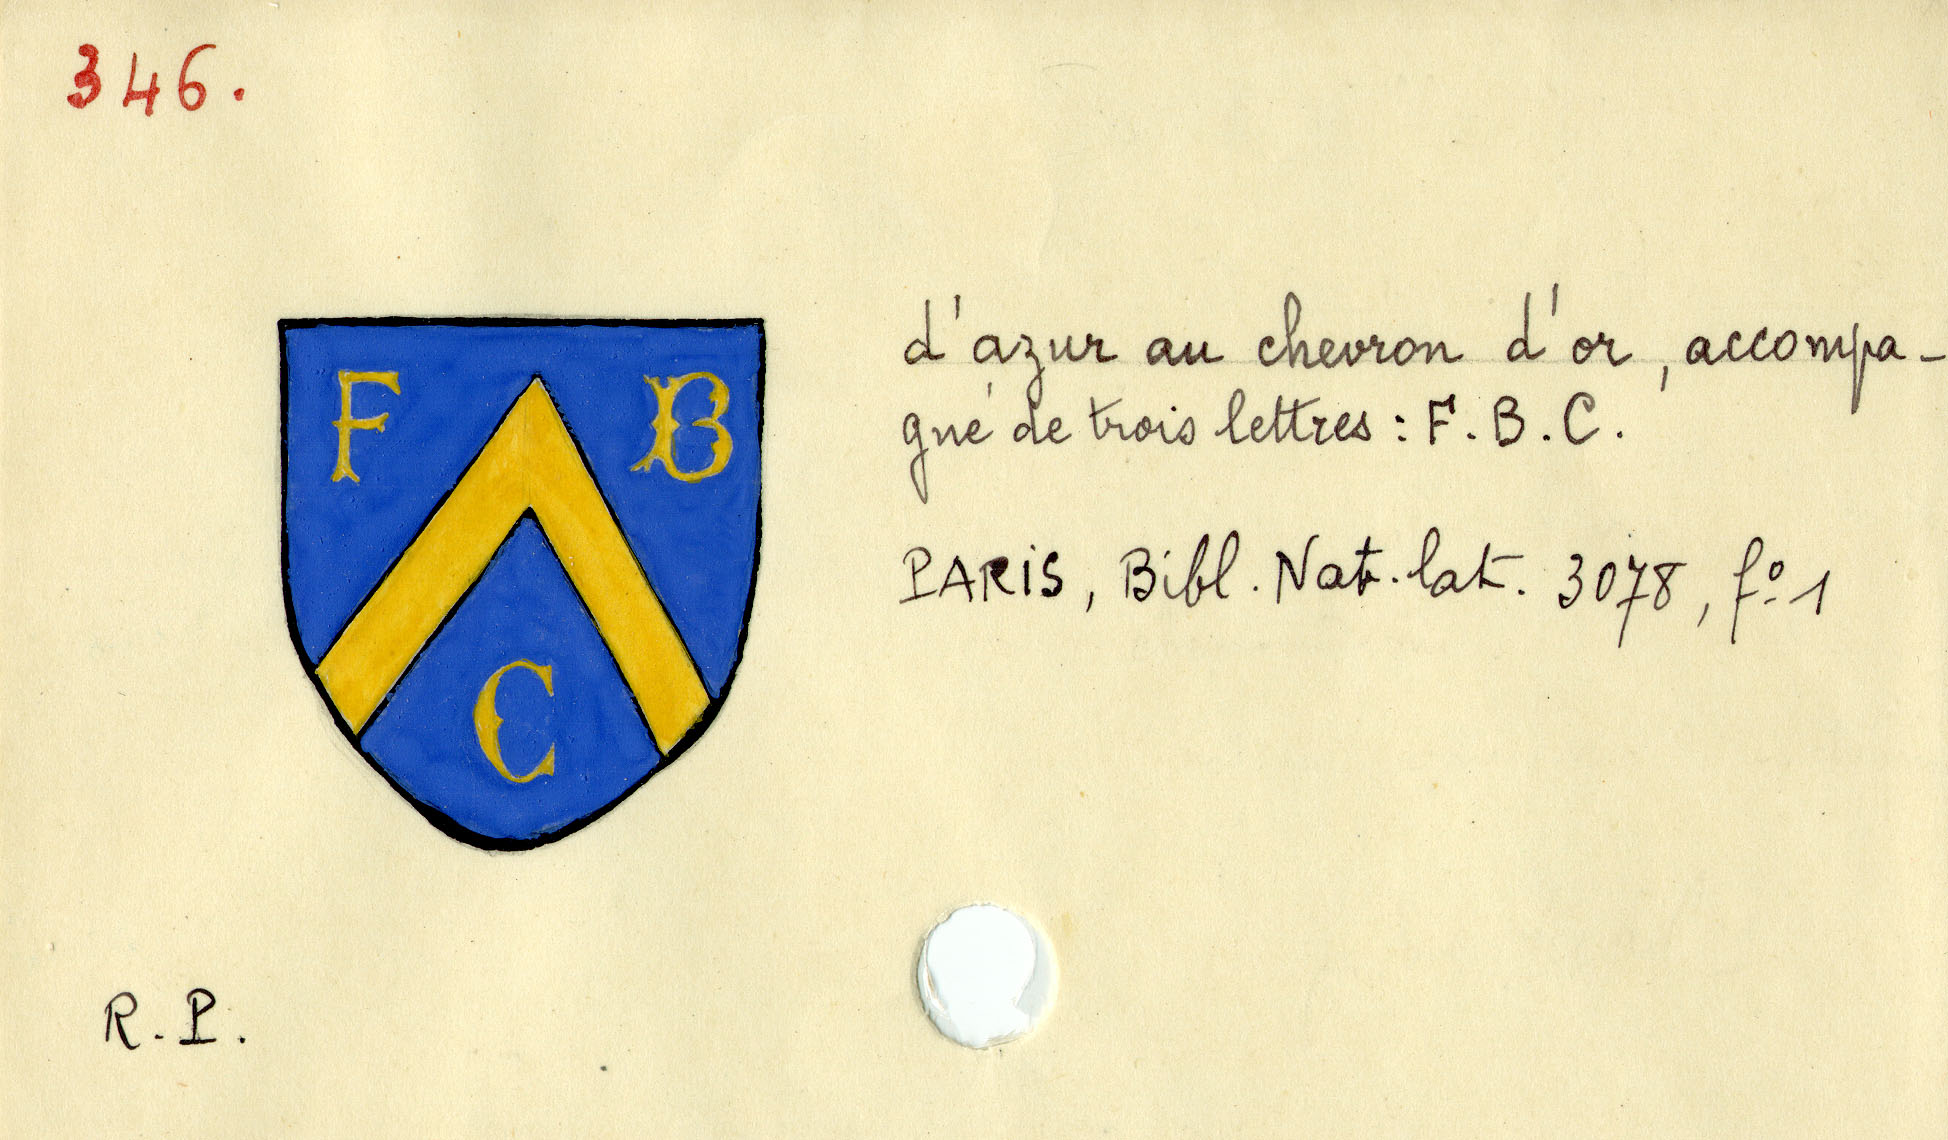 346.
F B
C
d'azur au chevron d'or, accompa-
gné de trois lettres : F. B. C.
PARIS, Bibl. Nat. lat. 3078, fº 1
R. P.